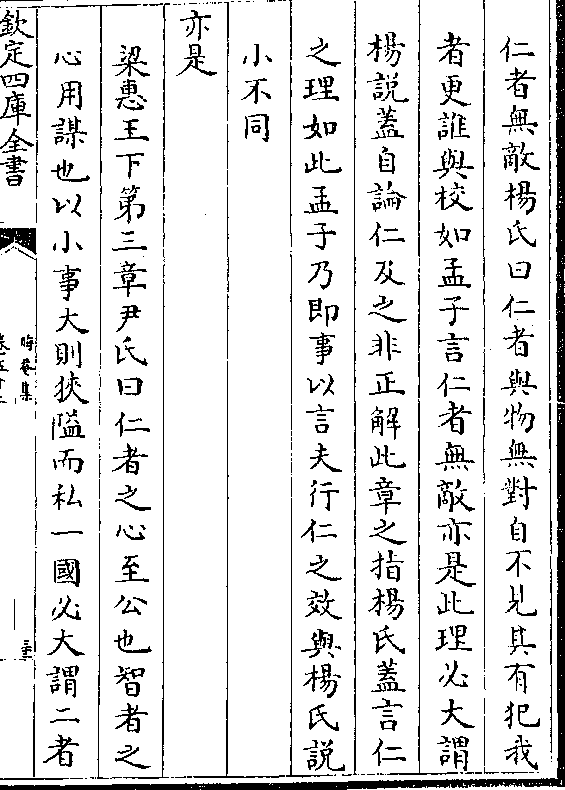 仁者無敵楊氏曰仁者與物無對自不見其有犯我
者更誰與校如孟子言仁者無敵亦是此理必大謂
楊説蓋自論仁及之非正解此章之指楊氏蓋言仁
之理如此孟子乃即事以言夫行仁之效與楊氏説
小不同
亦是
梁惠王下第三章尹氏曰仁者之心至公也智者之
心用謀也以小事大則狹隘而私一國必大謂二者
欽定四庫全書
晦菴集